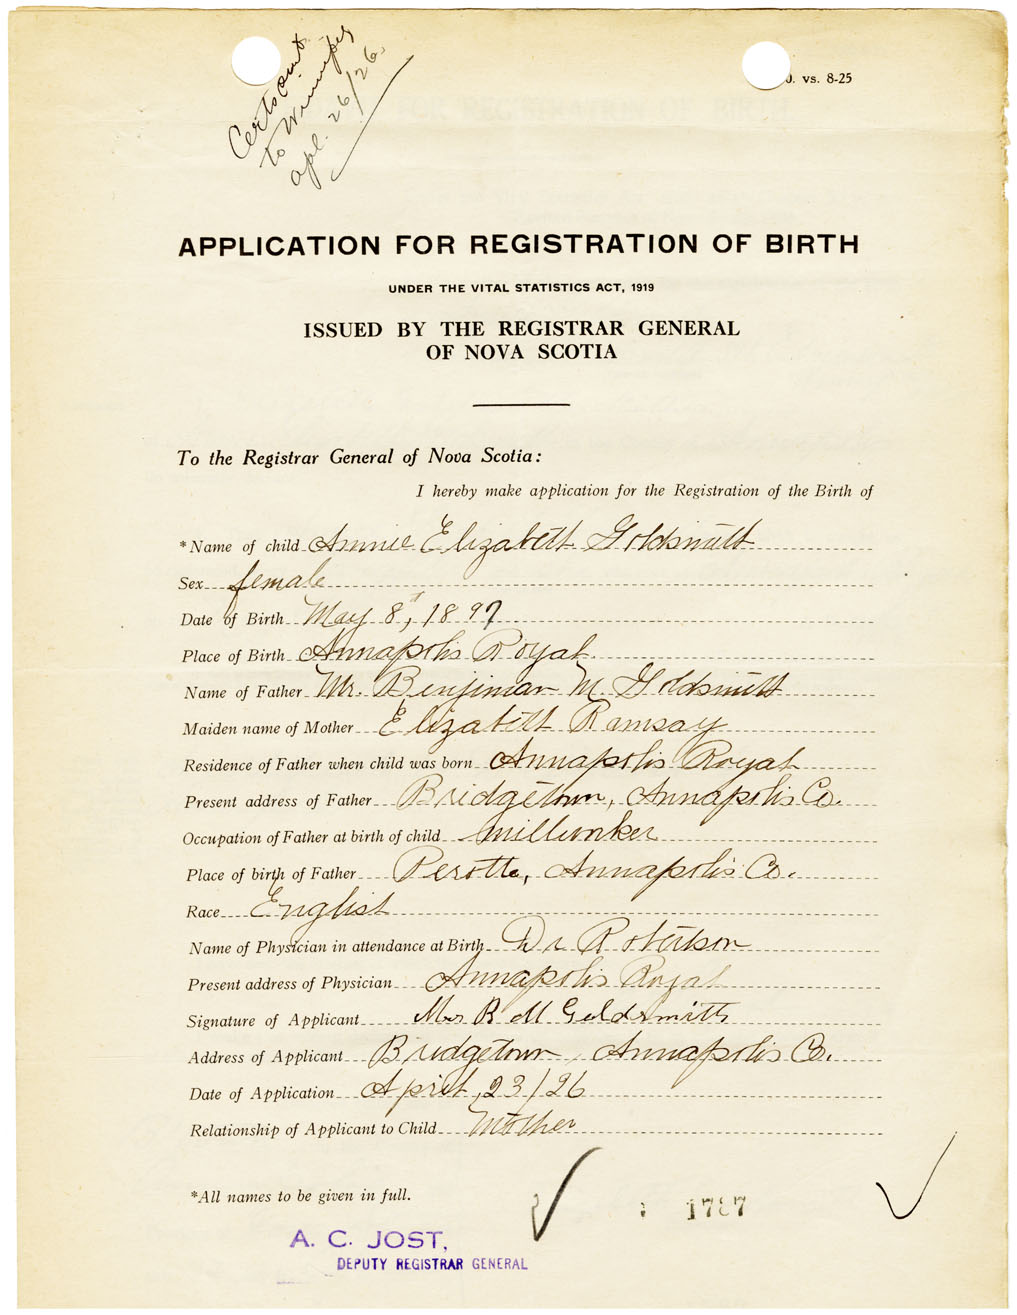 Cert sent
to Winnipeg
Apl. 26/26.
O. vs. 8-25
APPLICATION FOR REGISTRATION OF BIRTH
UNDER THE VITAL STATISTICS ACT, 1919
ISSUED BY THE REGISTRAR GENERAL
OF NOVA SCOTIA
To the Registrar General of Nova Scotia:
I hereby make application for the Registration of the Birth of
*Name of child Annie Elizabeth Goldsmith
Sex female
Date of Birth May 8", 1897
Place of Birth Annapolis Royal
Name of Father Mr. Benjiman M. Goldsmith
Maiden name of Mother Elizabeth Ramsay
Residence of Father when child was born Annapolis Royal
Present address of Father Bridgetown, Annapolis Co.
Occupation of Father at birth of child millworker
Place of birth of Father Perotte, Annapolis Co.
Race English
Name of Physician in attendance at Birth Dr Robertson
Present address of Physician Annapolis Royal
Signature of Applicant Mrs B M Goldsmith
Address of Applicant Bridgetown Annapolis Co.
Date of Application April, 23/26
Relationship of Applicant to Child Mother
*All names to be given in full.
1787
A. C. JOST,
DEPUTY REGISTRAR GENERAL